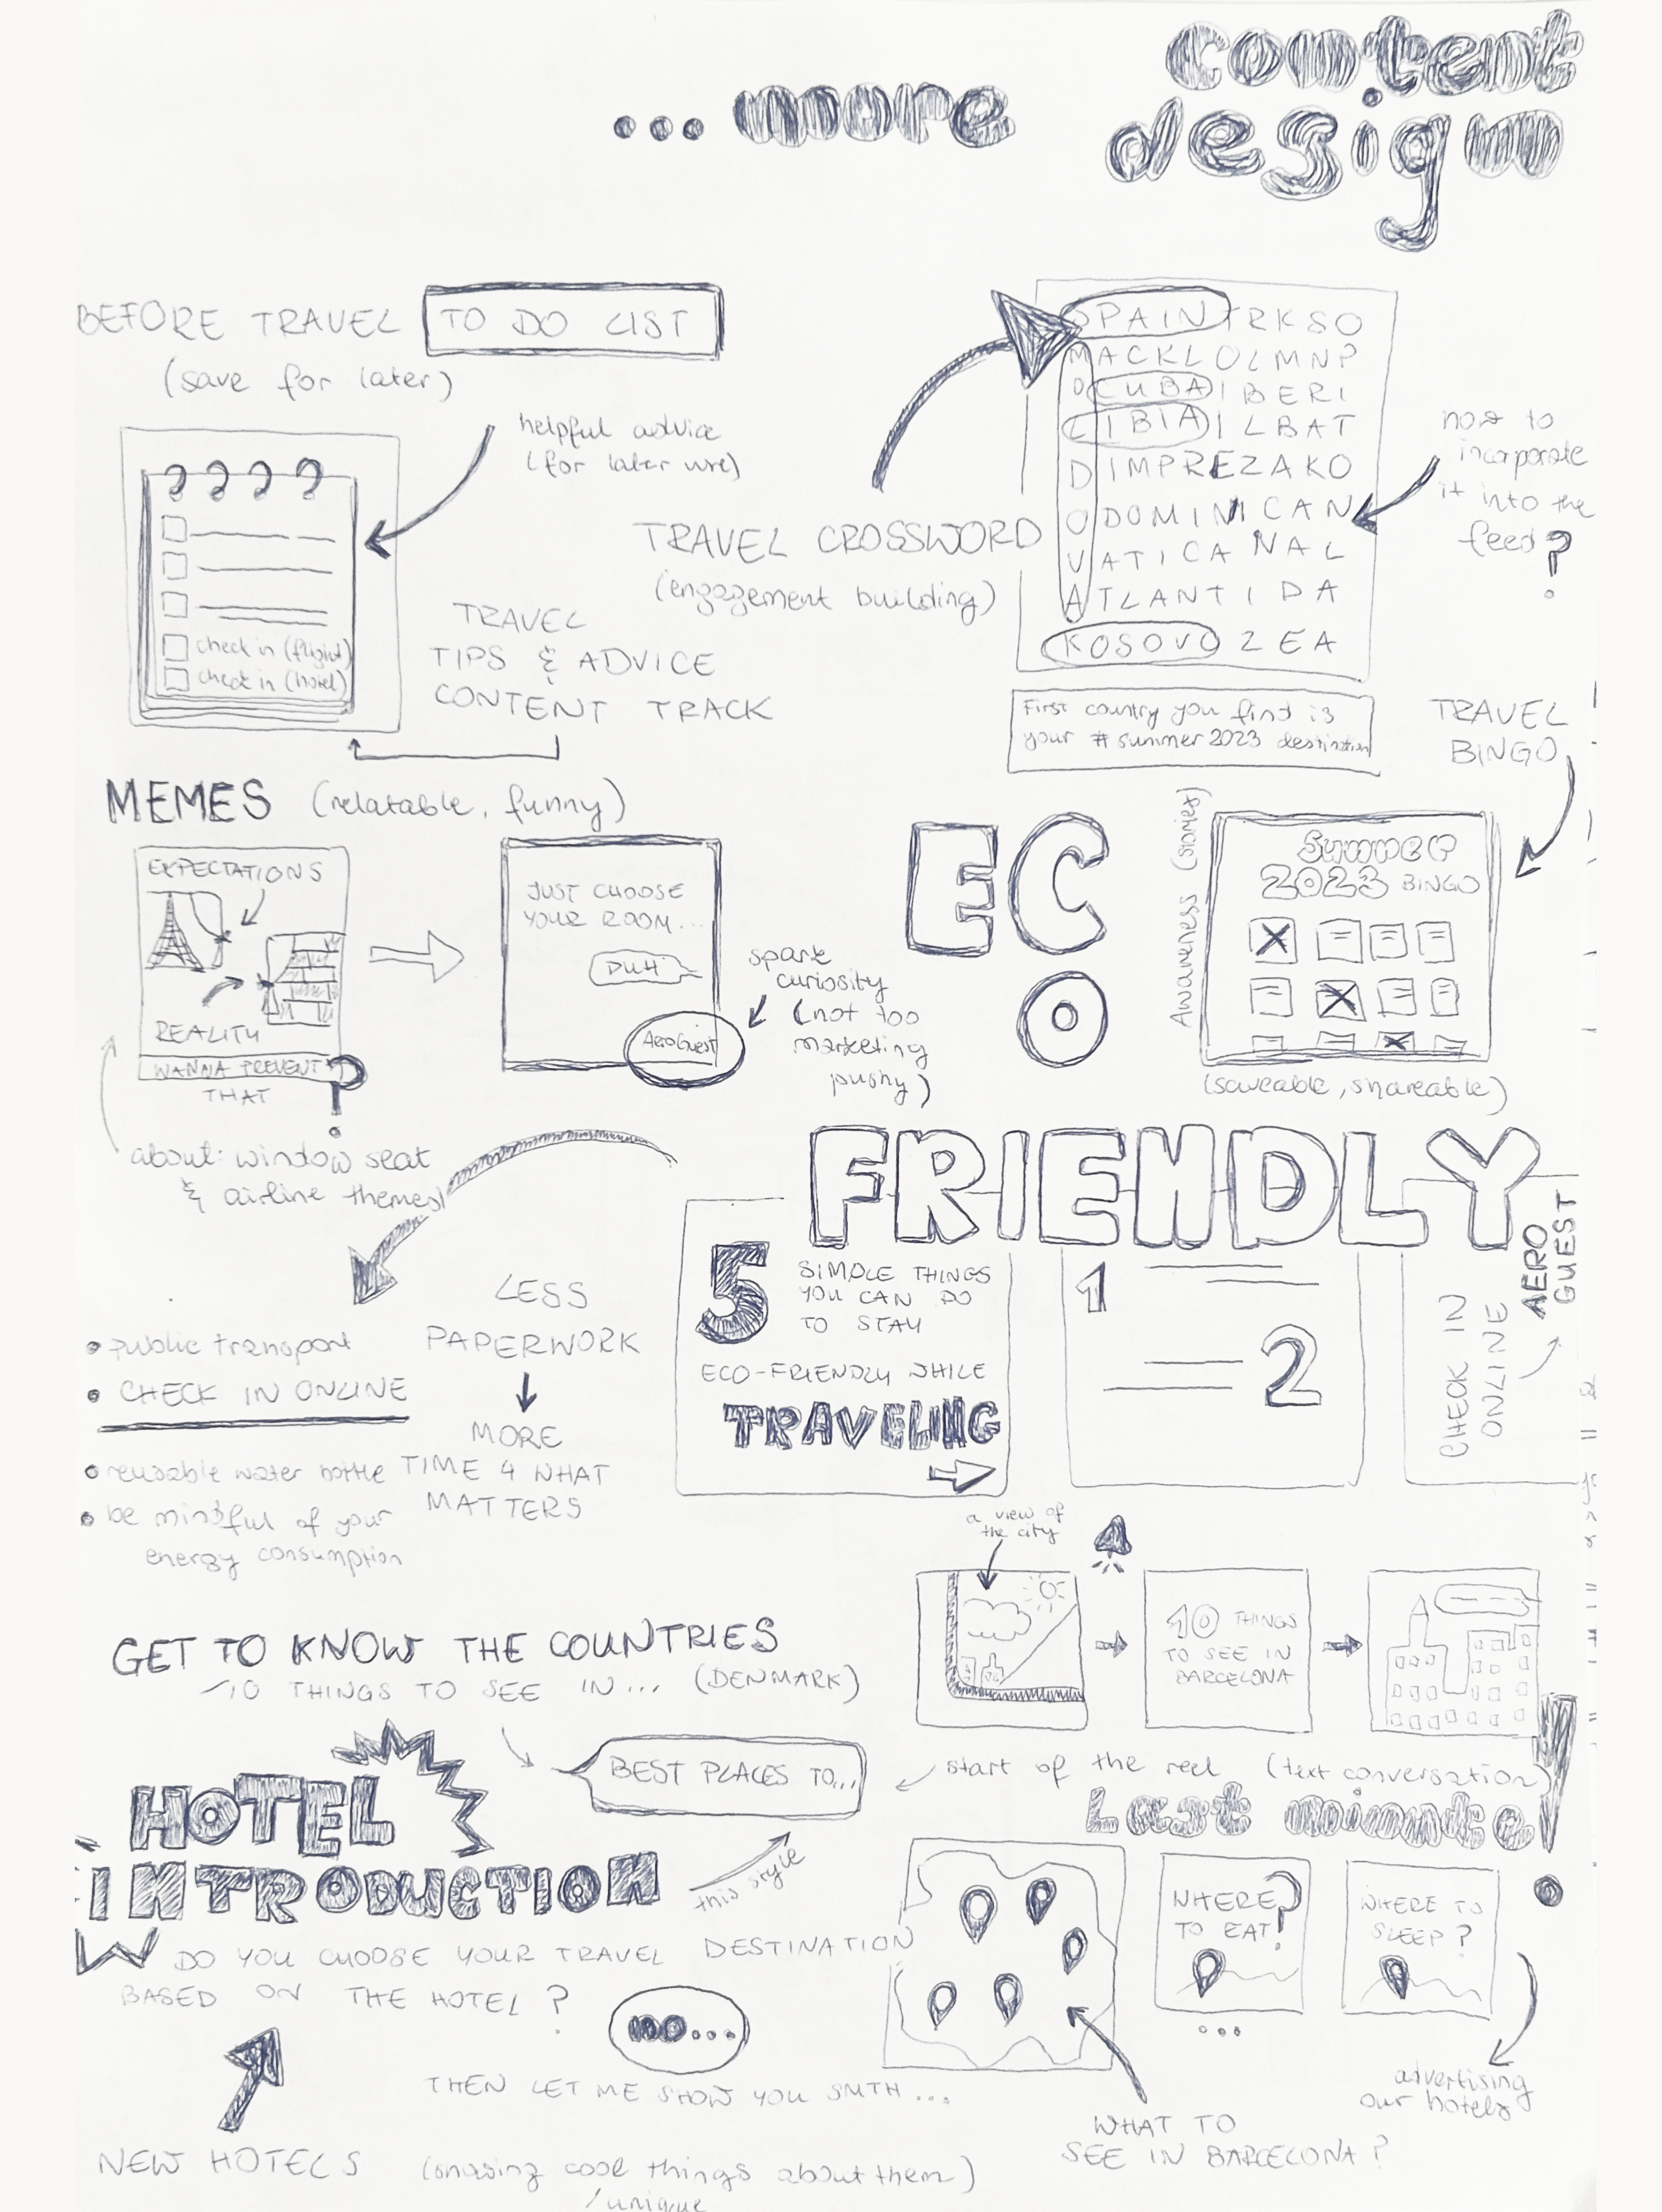 ... more
content
design
BEFORE TRAVEL TO DO LIST
(save for later)
helpful advice
(for later use)
check in (flight)
check in (hotel)
TRAVEL
TIPS & ADVICE
CONTENT TRACK
TRAVEL CROSSWORD
(engagement building)
SPAINTRKSO
MACKLOLMNP
OCUBAIBERI
LIBIAILBAT
DIMPREZAKO
ODOMINICAN
VATICANAL
ATLANTIDA
KOSOVOZEA
how to
incorporate
it into the
feed?
First country you find is
your #summer2023 destination
TRAVEL
BINGO
MEMES (relatable, funny)
EXPECTATIONS
REALITY
WANNA PREVENT
THAT ?
about: window seat
& airline themes
JUST CHOOSE
YOUR ROOM...
DUH
AeroGuest
spark
curiosity
(not too
marketing
pushy)
ECO
FRIENDLY
Awareness (stories)
Summer
2023 BINGO
(saveable, shareable)
• public transport
• CHECK IN ONLINE
• reusable water bottle
• be mindful of your
energy consumption
LESS
PAPERWORK
MORE
TIME 4 WHAT
MATTERS
5 SIMPLE THINGS
YOU CAN DO
TO STAY
ECO-FRIENDLY WHILE
TRAVELING
1
2
CHECK IN
ONLINE
AERO
GUEST
GET TO KNOW THE COUNTRIES
10 THINGS TO SEE IN... (DENMARK)
a view of
the city
10 THINGS
TO SEE IN
BARCELONA
BEST PLACES TO...
start of the reel (text conversation)
HOTEL
INTRODUCTION
this style
DO YOU CHOOSE YOUR TRAVEL DESTINATION
BASED ON THE HOTEL ?
NO...
THEN LET ME SHOW YOU SMTH ...
NEW HOTELS (showing cool things about them)
/unique
Last minute!
WHERE
TO EAT?
...
WHERE TO
SLEEP?
advertising
our hotels
WHAT TO
SEE IN BARCELONA?